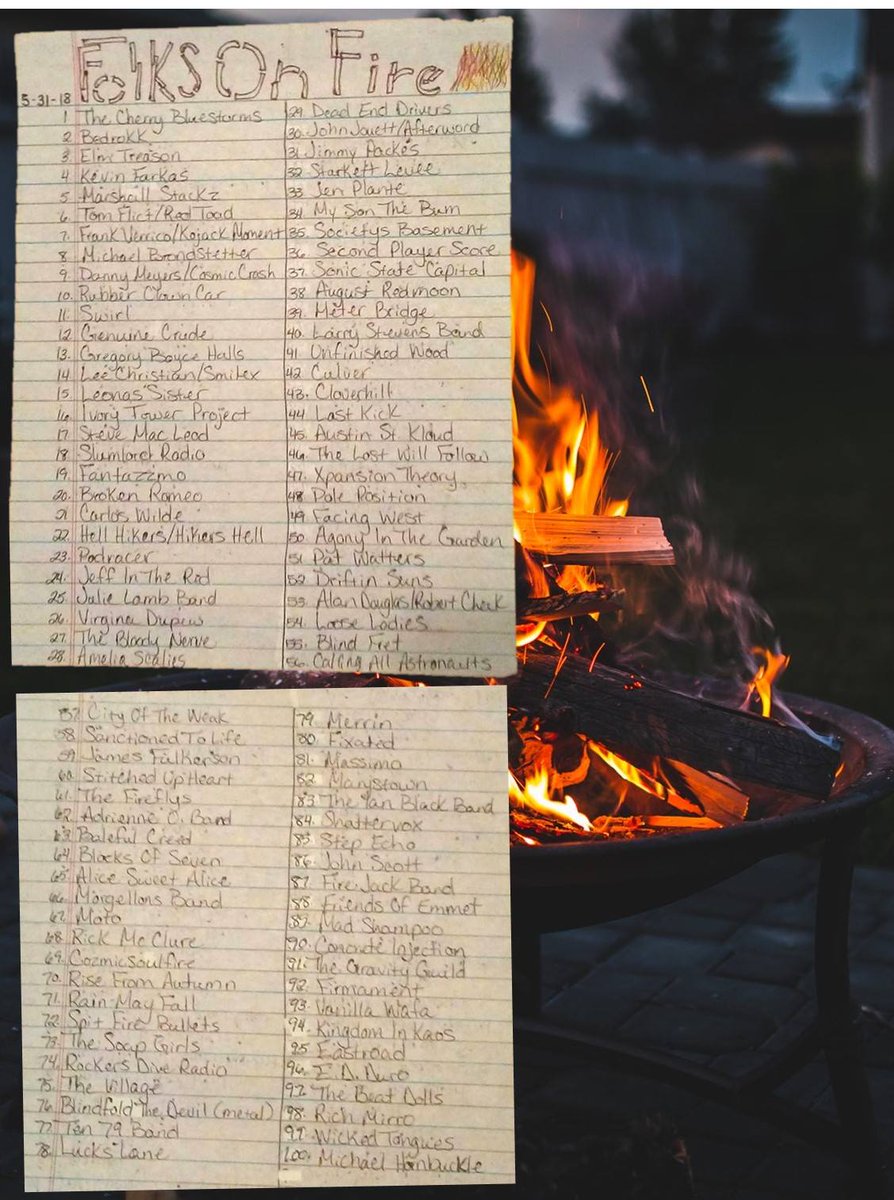 Folks On Fire
5-31-18
1 The Cherry Bluestorms
2 Bedrokk
3 Elm Treason
4 Kevin Farkas
5 Marshall Stackz
6 Tom Flict/Red Toad
7. Frank Verrico/Kojack Moment
8 Michael Brandstetter
9 Danny Meyers/Cosmic Crash
10. Rubber Clown Car
11. Swirl
12 Genuine Crude
13. Gregory Boyce Halls
14 Lee Christian/Smilex
15. Leonas Sister
16. Ivory Tower Project
17 Steve Mac Lead
18 Slumlord Radio
19. Fantazzimo
20. Broken Romeo
21 Carlos Wilde
22. Hell Hikers/Hikers Hell
23. Podracer
24. Jeff In The Red
25. Julie Lamb Band
26. Virgina Dupuw
27. The Bloody Nerve
28. Amelia Scalies
29. Dead End Drivers
30. John Jouett/Afterword
31. Jimmy Packes
32 Starkett Levee
33 Jen Plante
34. My Son The Bum
35. Societys Basement
36. Second Player Score
37. Sonic State Capital
38 August Redmoon
39. Meter Bridge
40. Larry Stevens Band
41 Unfinished Wood
42 Culver
43. Cloverhilt
44 Last Kick
45. Austin St Kloud
46. The Lost Will Follow
47. Xpansion Theory
48 Pole Position
49 Facing West
50 Agony In The Garden
51. Pat Watters
52. Driftin Suns
53. Alan Douglas/Robert Cheak
54 Loose Ladies
55. Blind Fret
56. Calling All Astronauts
57. City Of The Weak
58 Sanctioned To Life
59 James Fulkerson
60. Stitched Up Heart
61 The Fireflys
62 Adrienne O. Band
63 Baleful Creed
64 Blocks Of Seven
65 Alice Sweet Alice
66 Morgellons Band
67. Moto
68 Rick Mc Clure
69 Cozmicsoulfire
70. Rise From Autumn
71. Rain May Fall
72 Spit Fire Bullets
73 The Soap Girls
74 Rockers Dive Radio
75. The Village
76. Blindfold The Devil (metal)
77 Ten 79 Band
78. Lucks Lane
79. Merrin
80. Fixated
81. Massimo
82 Marystown
83 The Ian Black Band
84. Shattervox
85 Step Echo
86. John Scott
87 Fire Jack Band
88 Friends Of Emmet
89. Mad Shampoo
90. Concrete Injection
91. The Gravity Guild
92 Firmament
93. Vanilla Wafa
94. Kingdom In Kaos
95 Eastroad
96. I.D. Duro
97. The Beat Dolls
98. Rich Mirro
99. Wicked Tongues
100. Michael Hornbuckle